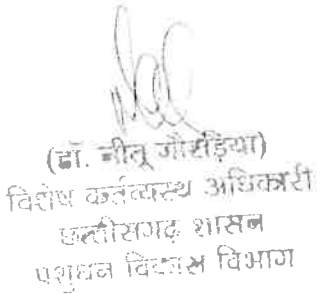 (डॉ. नीतू गौरड़िया)
विशेष कर्तव्यस्थ अधिकारी
छत्तीसगढ़ शासन
पशुधन विकास विभाग